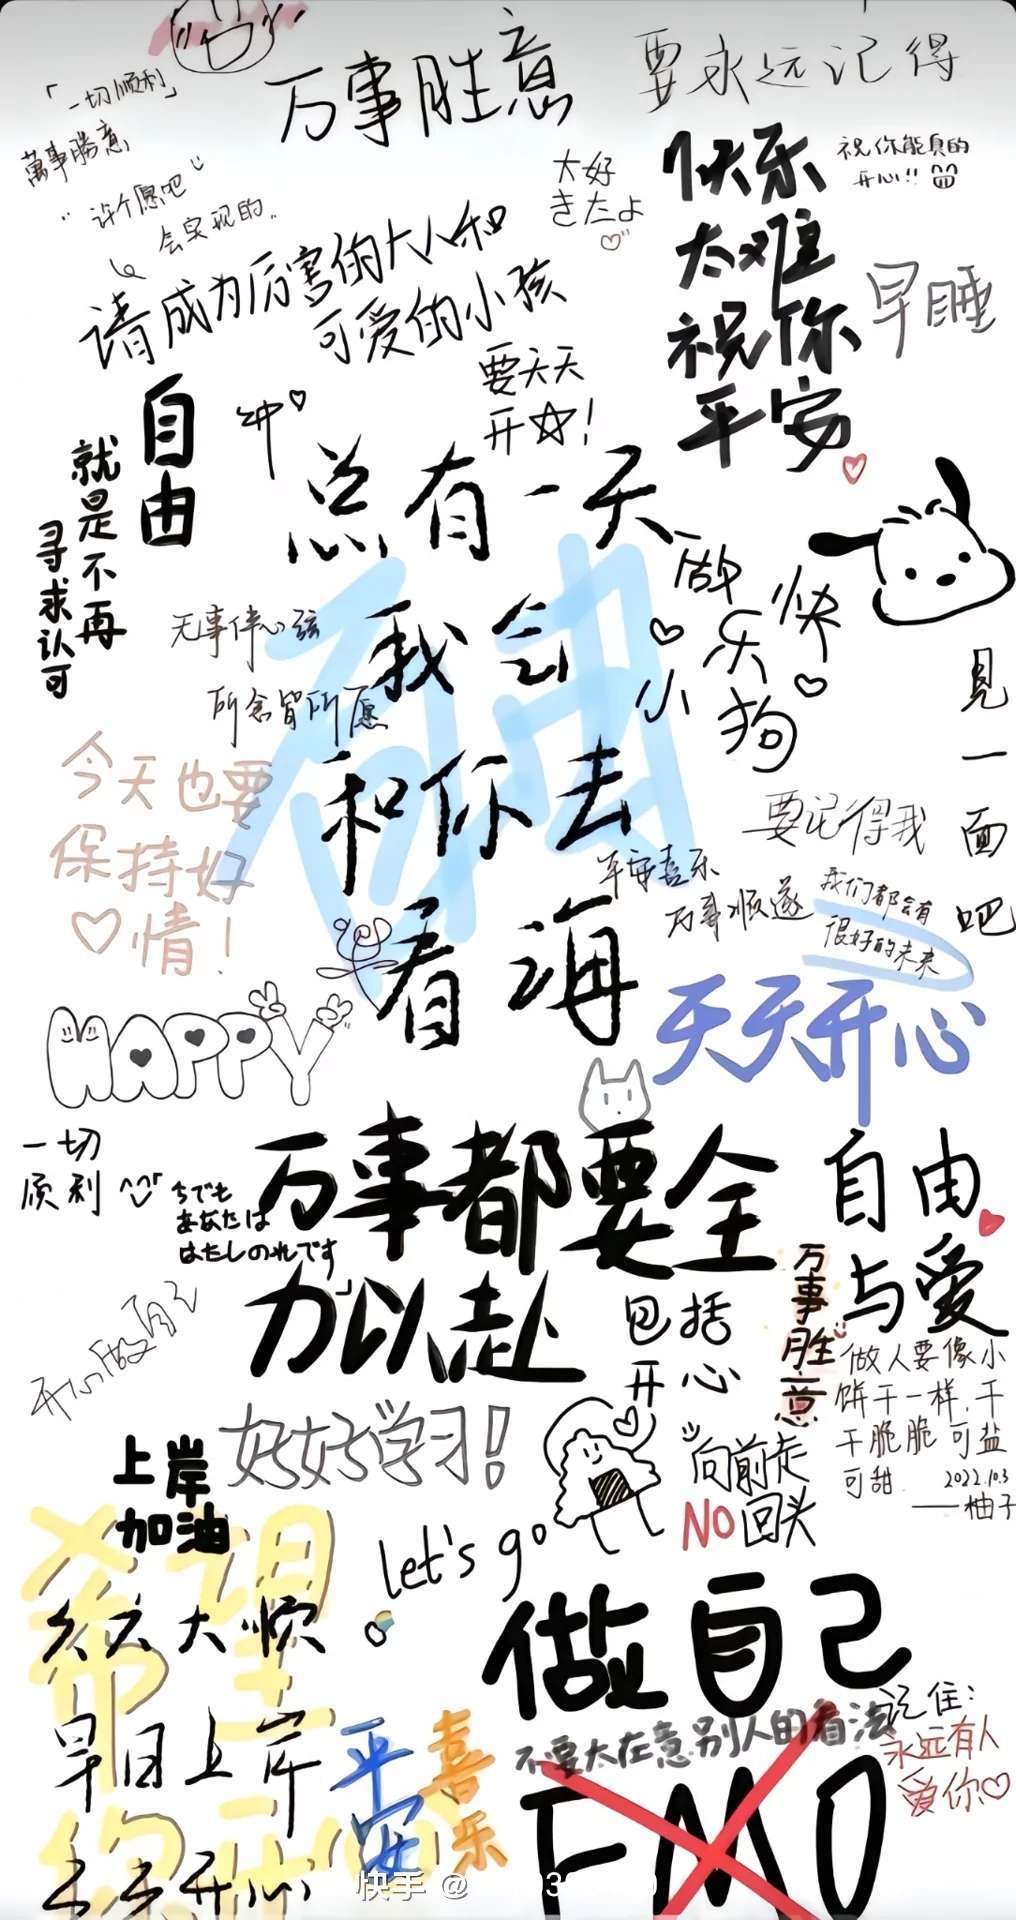 「一切顺利」
萬事勝意
许个愿吧
会实现的..
万事胜意
要永远记得
大好
きだよ
快乐
太难
祝你
平安
祝你能真的
开心!!
早睡
请成为厉害的大人和
可爱的小孩
要天天
开☆!
自由
就是不再
寻求认可
总有一天
我会
和你去
看海
自由
做
快
乐
小
狗
见一面吧
无事绊心弦
所念皆所愿
今天也要
保持好
♡情!
要记得我
平安喜乐
万事顺遂
我们都会有
很好的未来
天天开心
HAPPY
一切
顺利
万事都要全
力以赴
包括
开心
自由
与爱
万事胜意
做人要像小
饼干一样,干
干脆脆可盐
可甜
2022.10.3
——柚子
开心做自己
好好学习!
上岸
加油
向前走
NO回头
let's go
希望
天天大顺
早日上岸
天天开心
平安
喜乐
做自己
不要太在意别人的看法
EMO
记住:
永远有人
爱你♡
快手 @